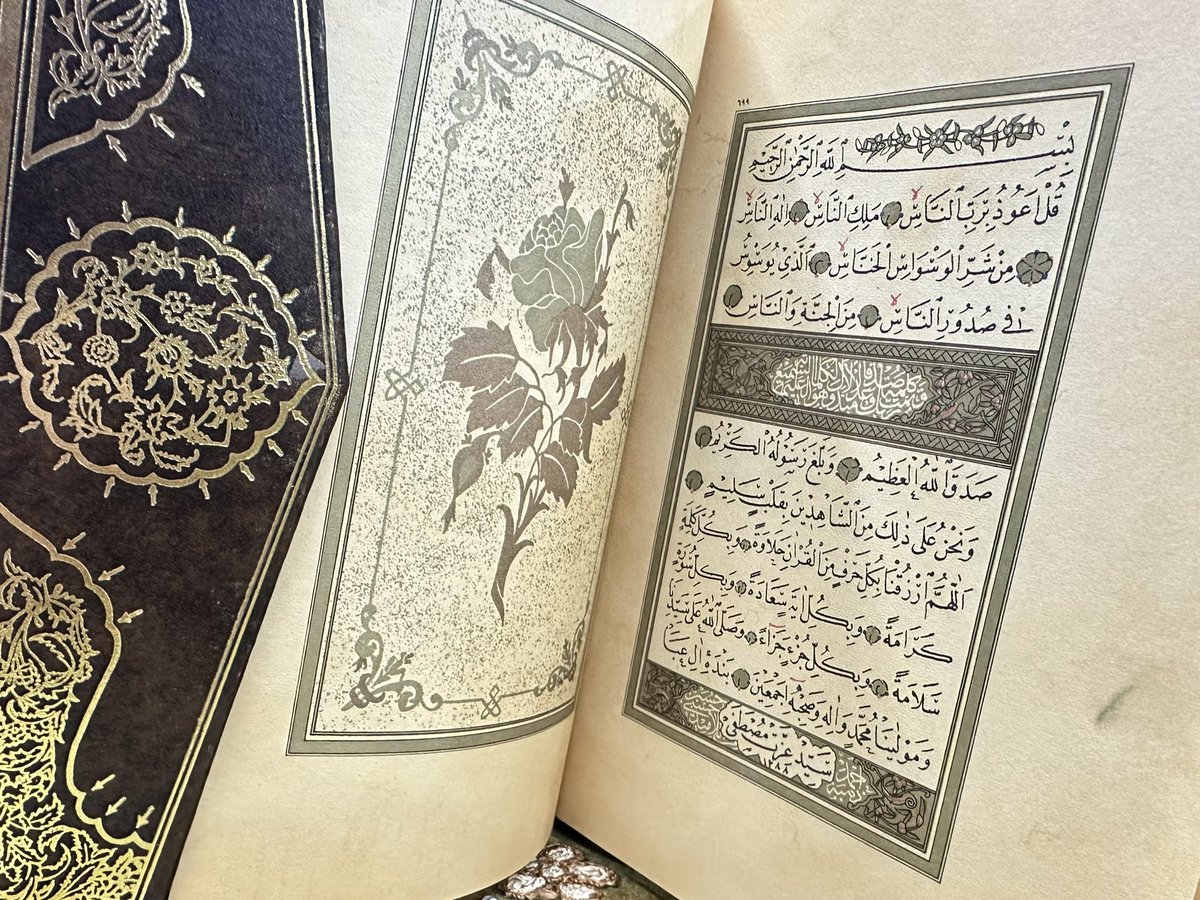 ٦٩٩
بِسْمِ ٱللَّهِ ٱلرَّحْمَٰنِ ٱلرَّحِيمِ
قُلْ اَعُوذُ بِرَبِّ ٱلنَّاسِۙ مَلِكِ ٱلنَّاسِۙ اِلٰهِ ٱلنَّاسِۙ
مِنْ شَرِّ ٱلْوَسْوَاسِ ٱلْخَنَّاسِۙ اَلَّذ۪ي يُوَسْوِسُ
ف۪ي صُدُورِ ٱلنَّاسِۙ مِنَ ٱلْجِنَّةِ وَٱلنَّاسِ
صَدَقَ ٱللّٰهُ ٱلْعَظ۪يمُ وَبَلَّغَ رَسُولُهُ ٱلْكَر۪يمُ
وَنَحْنُ عَلٰى ذٰلِكَ مِنَ ٱلشَّاهِد۪ينَ بِقَلْبٍ سَل۪يمٍ
اَللّٰهُمَّ ٱرْزُقْنَا بِكُلِّ حَرْفٍ مِنَ ٱلْقُرْاٰنِ حَلَاوَةً وَبِكُلِّ كَلِمَةٍ
كَرَامَةً وَبِكُلِّ اٰيَةٍ سَعَادَةً وَبِكُلِّ سُورَةٍ
سَلَامَةً وَبِكُلِّ جُزْءٍ جَزَاءً وَصَلَّى ٱللّٰهُ عَلٰى سَيِّدِنَا
وَمَوْلٰينَا مُحَمَّدٍ وَاٰلِه۪ وَصَحْبِه۪ اَجْمَع۪ينَ بَنْدَهٔ اٰلِ عَبَا
سَيِّدْ عِزَّتْ مُصْطَفٰى